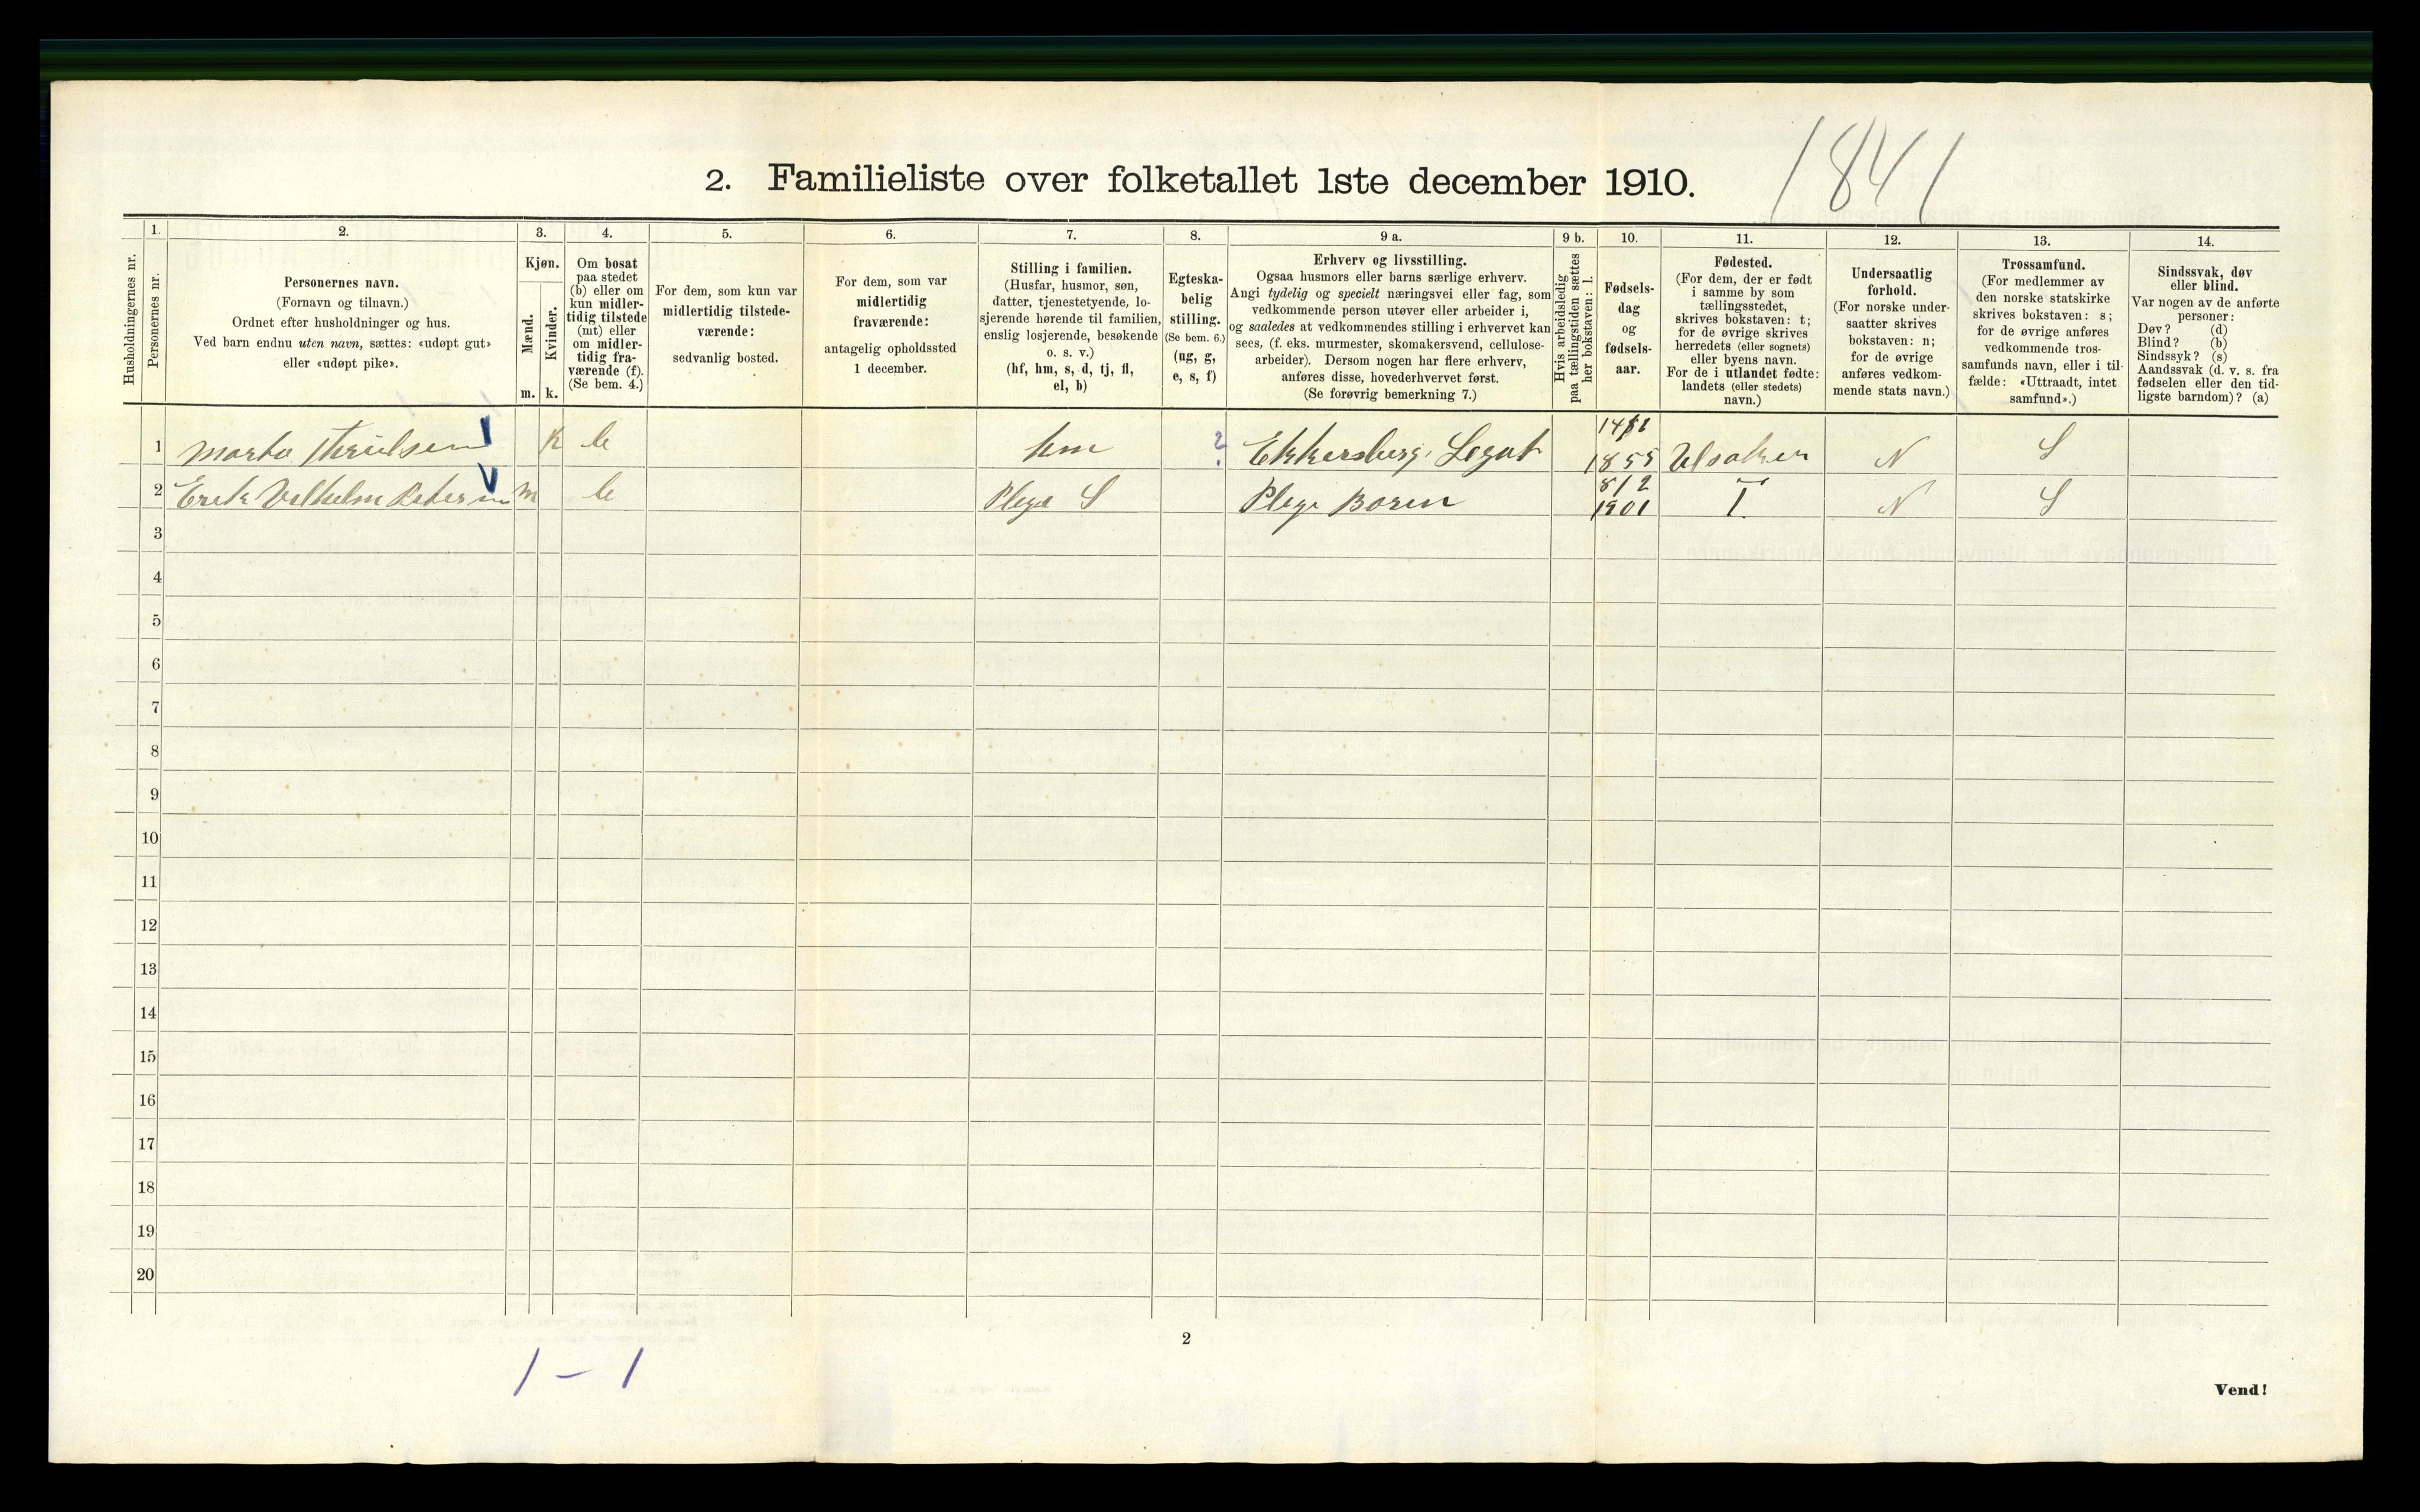 1841
2. Familieliste over folketallet 1ste december 1910.
Husholdningernes nr.
1.
Personernes nr.
2.
Personernes navn.
(Fornavn og tilnavn.)
Ordnet efter husholdninger og hus.
Ved barn endnu uten navn, sættes: «udøpt gut»
eller «udøpt pike».
3.
Kjøn.
Mænd.
Kvinder.
m. k.
4.
Om bosat
paa stedet
(b) eller om
kun midler-
tidig tilstede
(mt) eller
om midler-
tidig fra-
værende (f).
(Se bem. 4.)
5.
For dem, som kun var
midlertidig tilstede-
værende:
sedvanlig bosted.
6.
For dem, som var
midlertidig
fraværende:
antagelig opholdssted
1 december.
7.
Stilling i familien.
(Husfar, husmor, søn,
datter, tjenestetyende, lo-
sjerende hørende til familien,
enslig losjerende, besøkende
o. s. v.)
(hf, hm, s, d, tj, fl,
el, b)
8.
Egteska-
belig
stilling.
(Se bem. 6.)
(ug, g,
e, s, f)
9 a.
Erhverv og livsstilling.
Ogsaa husmors eller barns særlige erhverv.
Angi tydelig og specielt næringsvei eller fag, som
vedkommende person utøver eller arbeider i,
og saaledes at vedkommendes stilling i erhvervet kan
sees, (f. eks. murmester, skomakersvend, cellulose-
arbeider). Dersom nogen har flere erhverv,
anføres disse, hovederhvervet først.
(Se forøvrig bemerkning 7.)
9 b.
Hvis arbeidsledig
paa tællingstiden sættes
her bokstaven: l.
10.
Fødsels-
dag
og
fødsels-
aar.
11.
Fødested.
(For dem, der er født
i samme by som
tællingsstedet,
skrives bokstaven: t;
for de øvrige skrives
herredets (eller sognets)
eller byens navn.
For de i utlandet fødte:
landets (eller stedets)
navn.)
12.
Undersaatlig
forhold.
(For norske under-
saatter skrives
bokstaven: n;
for de øvrige
anføres vedkom-
mende stats navn.)
13.
Trossamfund.
(For medlemmer av
den norske statskirke
skrives bokstaven: s;
for de øvrige anføres
vedkommende tros-
samfunds navn, eller i til-
fælde: «Uttraadt, intet
samfund».)
14.
Sindssvak, døv
eller blind.
Var nogen av de anførte
personer:
Døv? (d)
Blind? (b)
Sindssyk? (s)
Aandssvak (d. v. s. fra
fødselen eller den tid-
ligste barndom)? (a)
1 K b hm ? Ekkersberg Legat 1855 Ulsaker N S
2 Erik Vilhelm Petersen m b Pleje S Pleje Boren 8/12 1901 T N S
3
4
5
6
7
8
9
10
11
12
13
14
15
16
17
18
19
20
2
1 – 1
Vend!